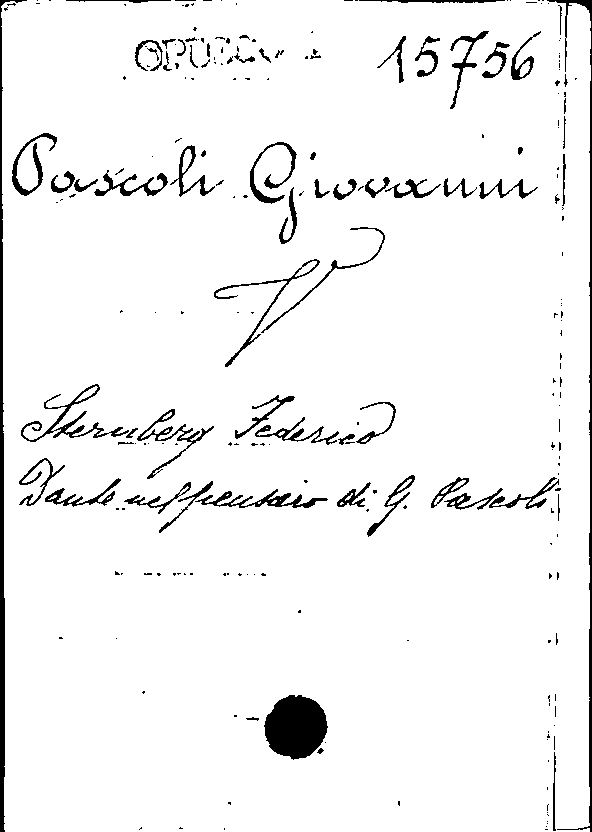 15756
Pascoli Giovanni
V
Sternberg Federico
Dante nel pensiero di G. Pascoli